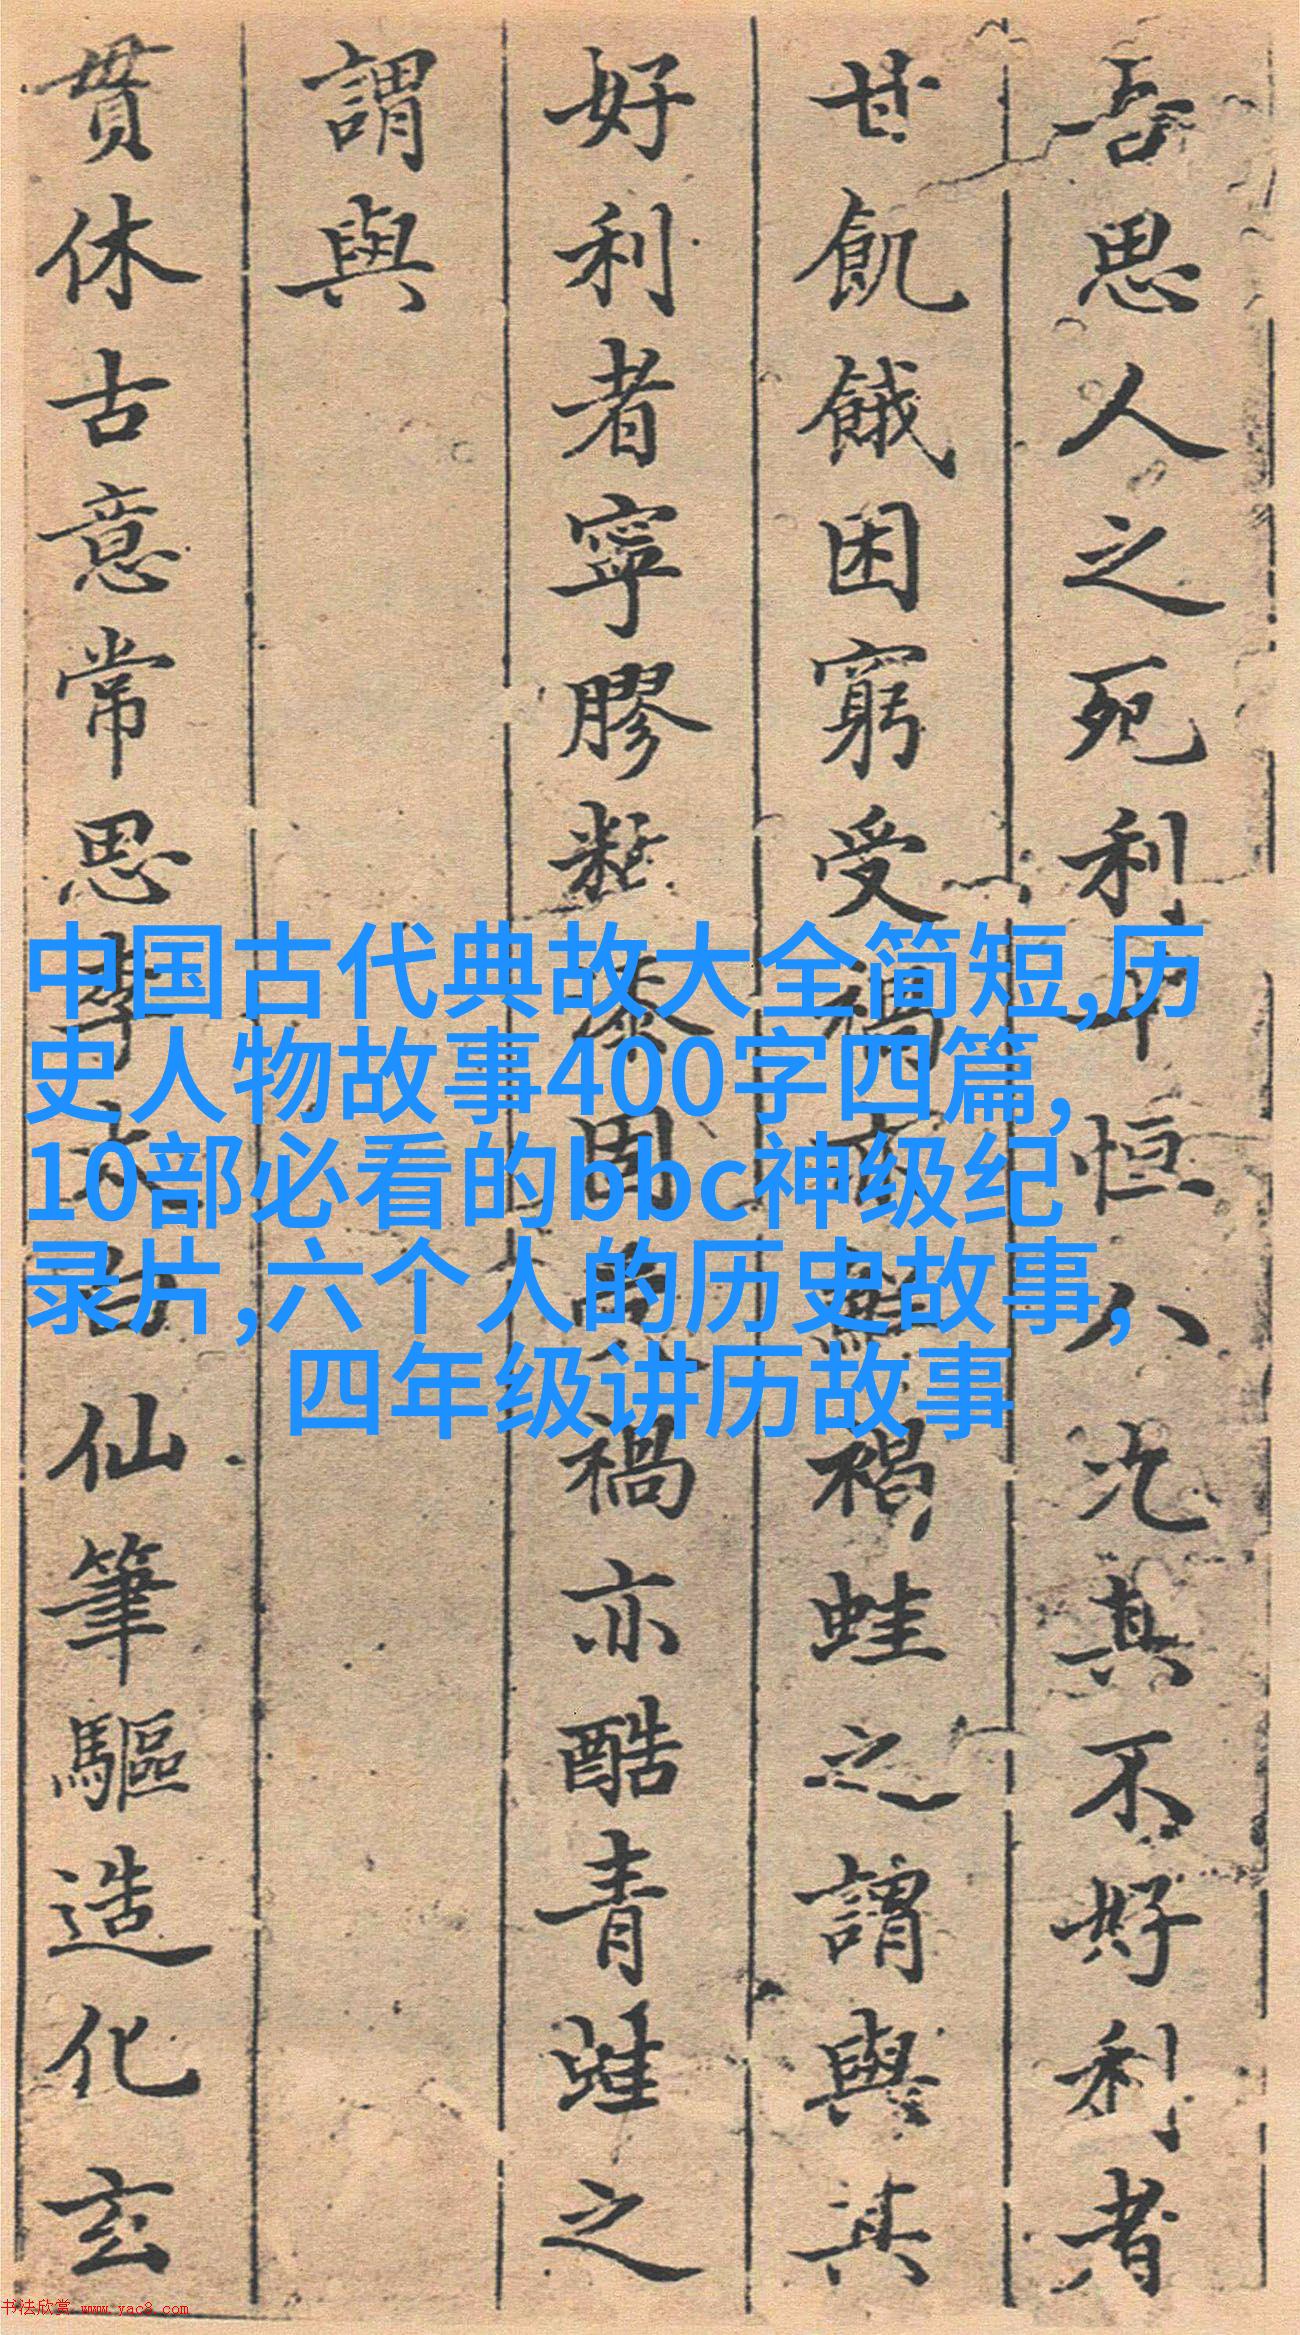 吾思人之死利十恒八汔其不好利者
甘飢餓困窮受禍亦禍蛙之謂與其
好利者寧膠黏漆固禍亦酷青蛙之
謂與
貫休古意常思李太白仙筆驅造化玄
中国古代典故大全简短,历
史人物故事400字四篇,
10部必看的bbc神级纪
录片,六个人的历史故事,
四年级讲历故事
书法欣赏 www.yac8.com